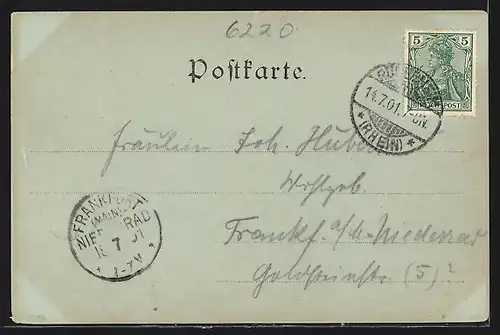 6220
Postkarte.
5 5
REICHSPOST
14.7.01.
* (RHEIN) *
Fräulein Joh. Huber
Wohlgeb.
Frankf. a/M-Niederrad
Goldsteinstr. (5)²
FRANKFURT
(MAIN)
NIEDERRAD
7 01